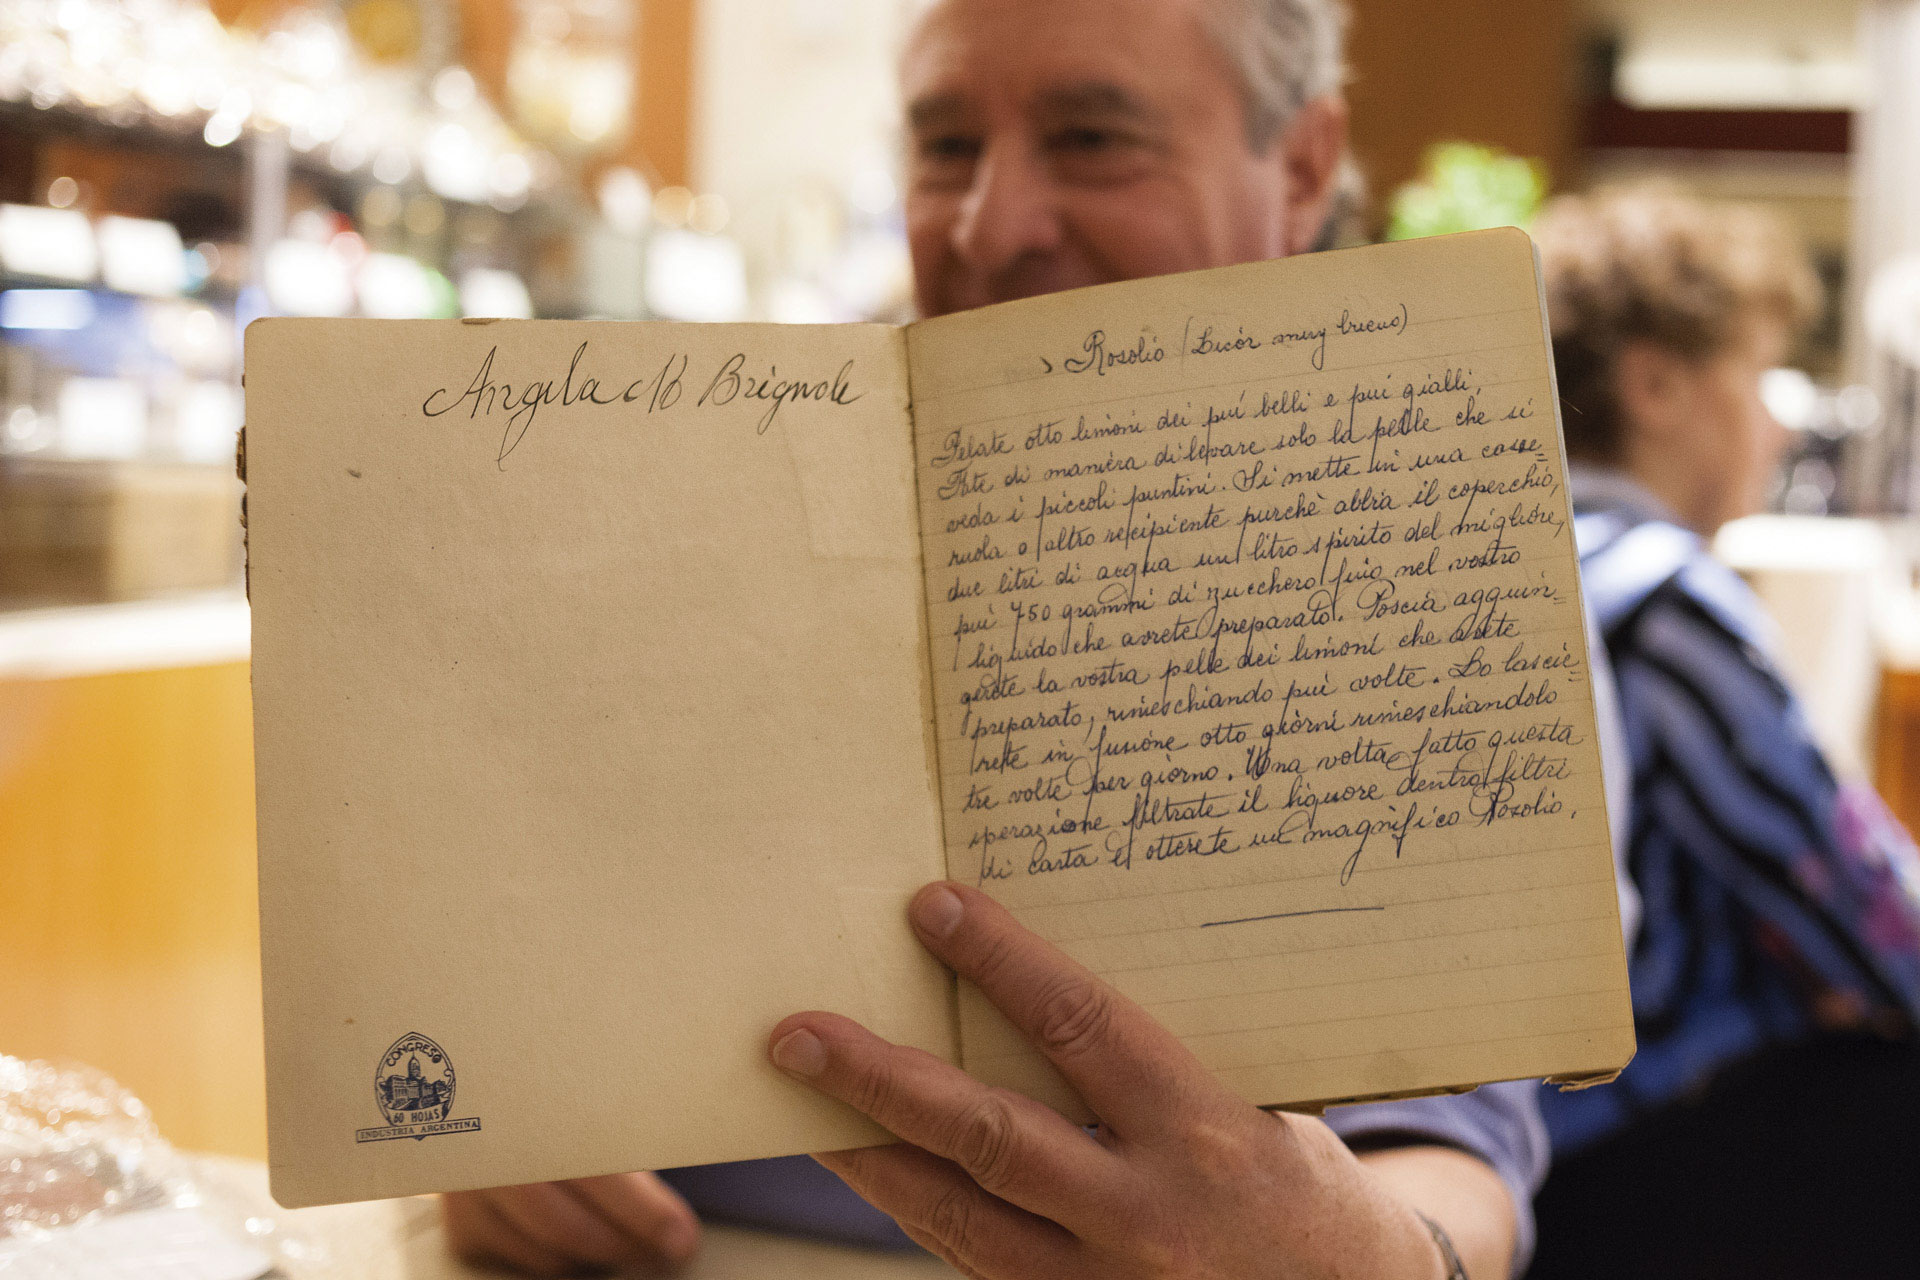 Angela M Brignole
CONGRESO
60 HOJAS
INDUSTRIA ARGENTINA
Rosolio (Licòr muy bueno)
Pelate otto limoni dei puí belli e puí gialli,
Fate di maniéra di levare solo la pelle che si
veda i piccoli puntini. Si mette in una casse=
ruola o altro recipiente purchè abbia il coperchio,
due litri di acqua un litro spirito del migliore,
puí 750 grammi di zucchero fuio nel vostro
liquido che avrete preparato. Poscia agguin=
gerete la vostra pelle dei limoni che avete
preparato, rimeschiando puí volte. Lo lascie=
rete in fusióne otto giòrni rimeschiandolo
tre volte per giorno. Una volta fatto questa
operazione filtrate il liquore dentro filtri
di carta et otterete un magnifico Rosolio.